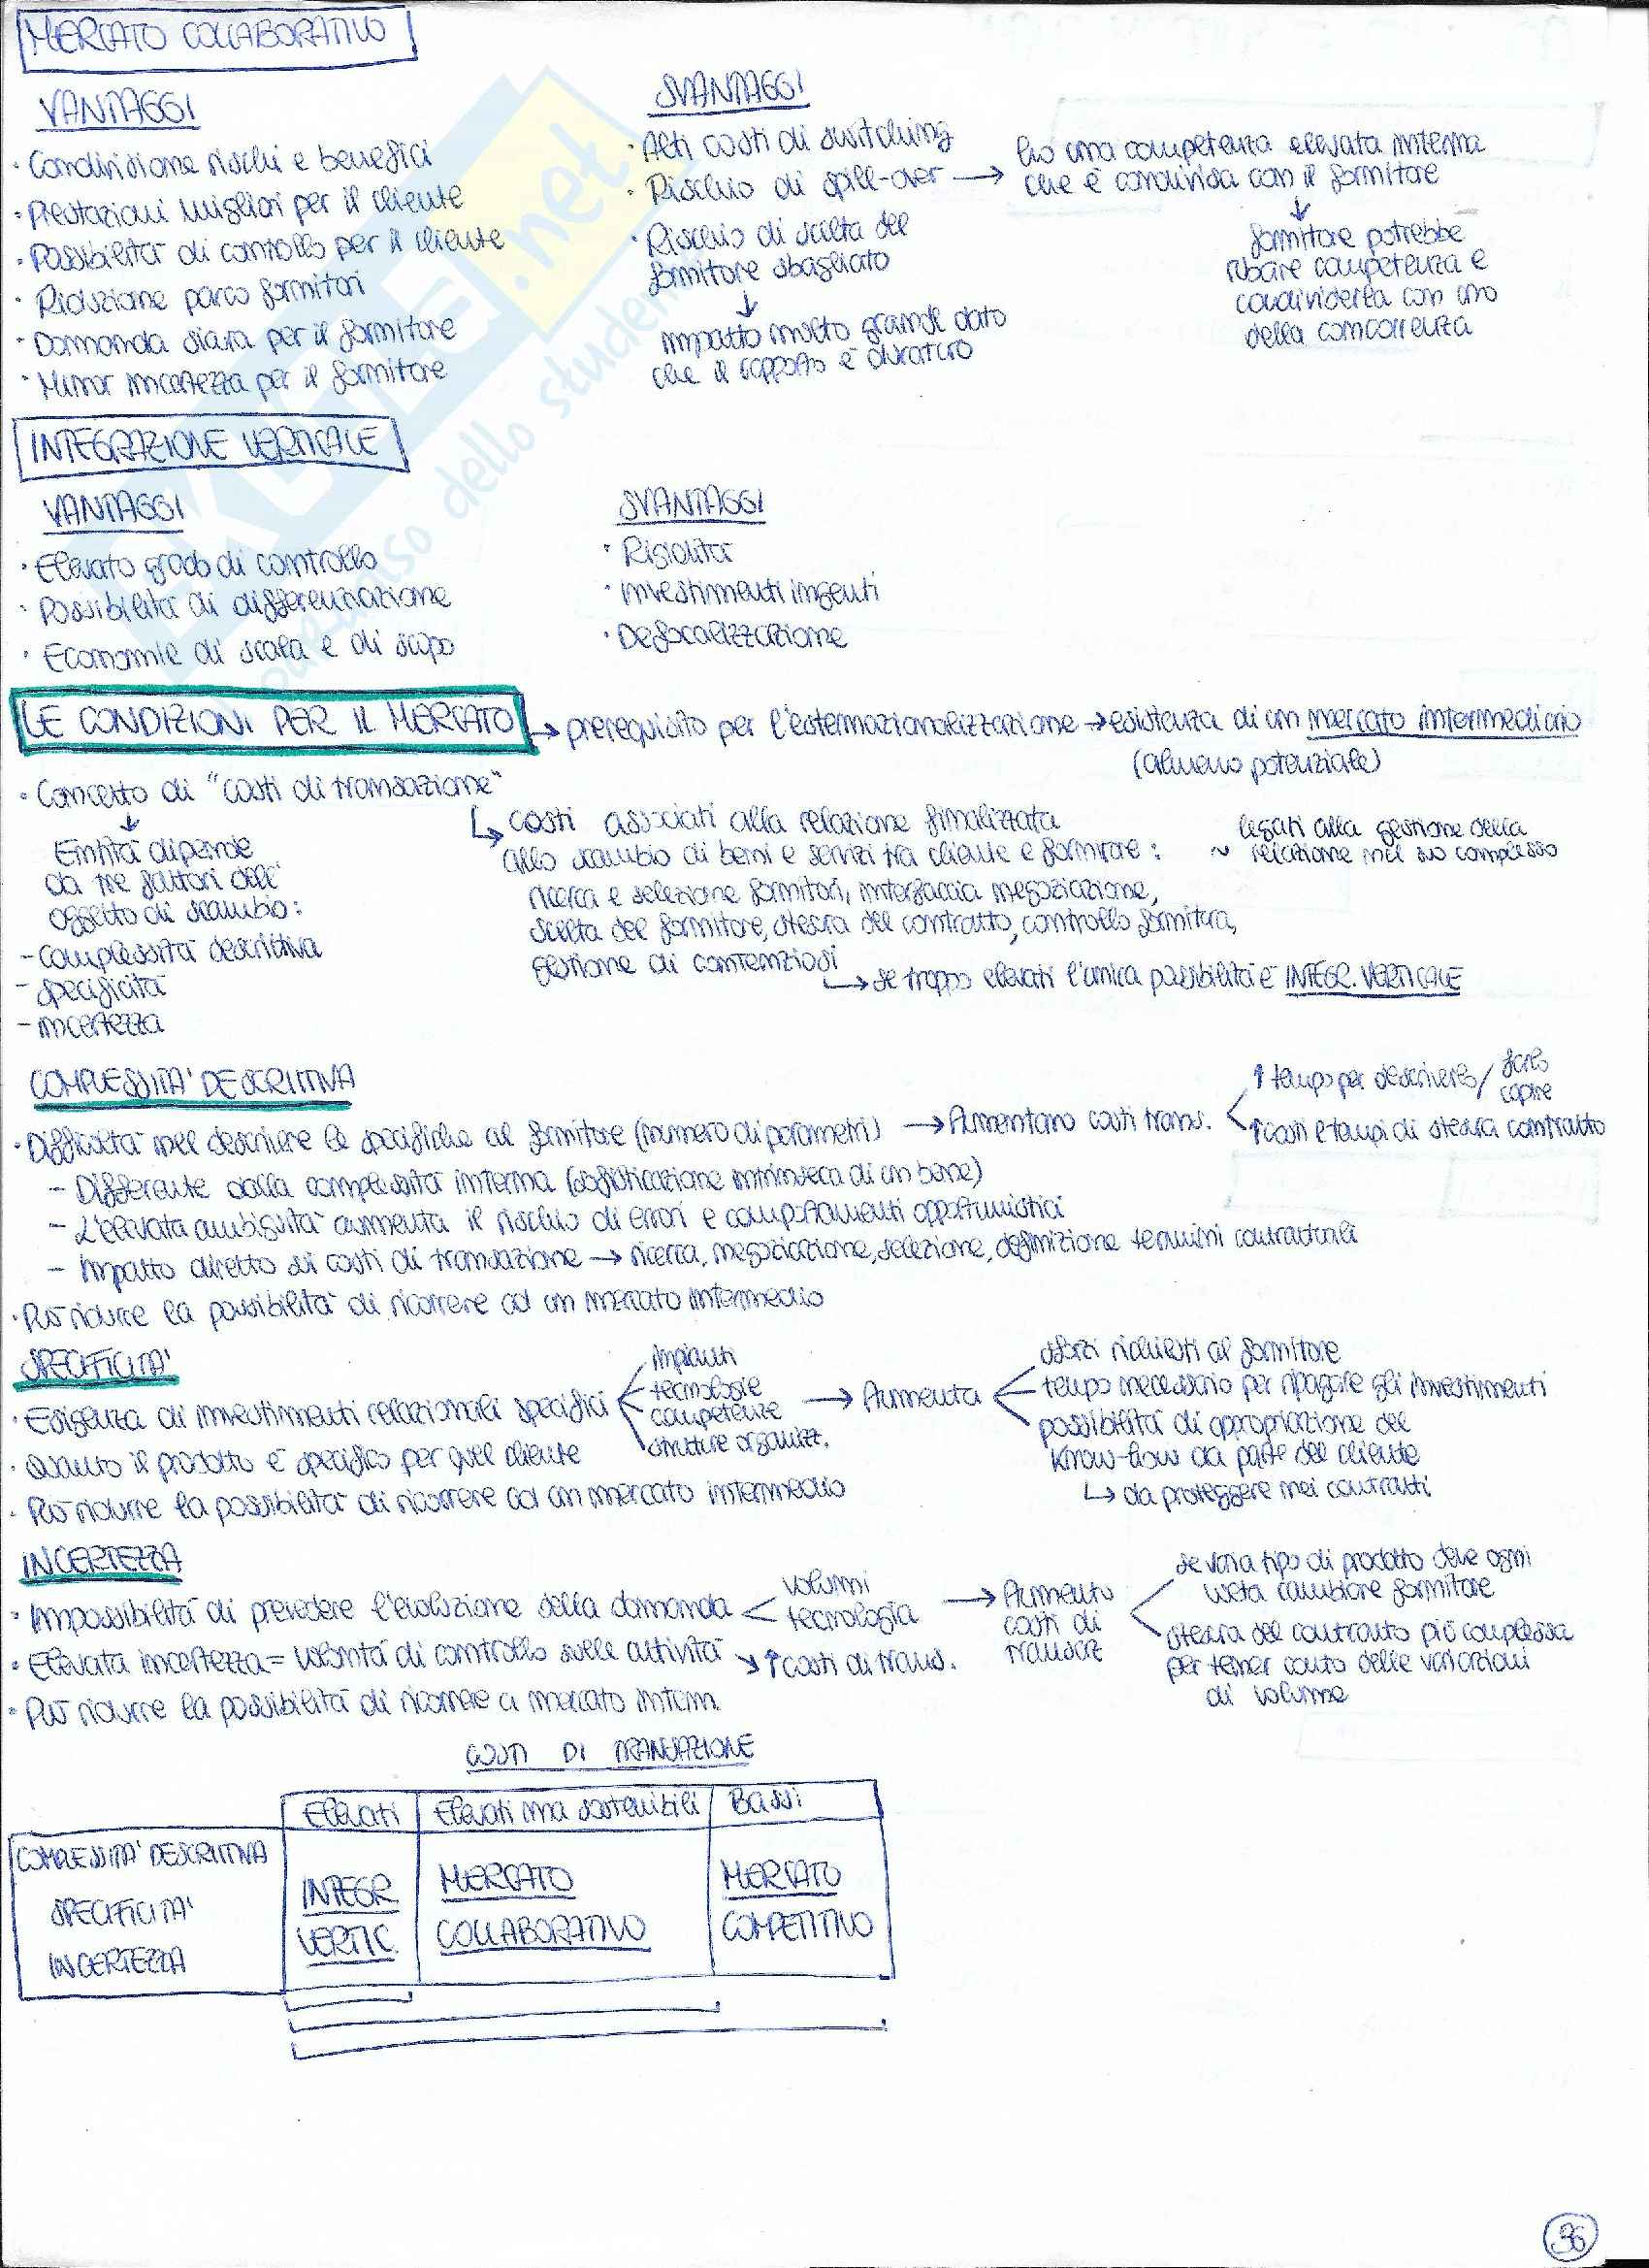 MERCATO COLLABORATIVO
VANTAGGI
· Condivisione rischi e benefici
· Prestazioni migliori per il cliente
· Possibilità di controllo per il cliente
· Riduzione parco fornitori
· Domanda sicura per il fornitore
· Minor incertezza per il fornitore
SVANTAGGI
· Alti costi di switching
· Rischio di spill-over → ho una competenza elevata interna
che è condivisa con il fornitore
↓
fornitore potrebbe
rubare competenza e
condividerla con uno
della concorrenza
· Rischio di scelta del
fornitore sbagliato
↓
impatto molto grande dato
che il rapporto è duraturo
INTEGRAZIONE VERTICALE
VANTAGGI
· Elevato grado di controllo
· Possibilità di differenziazione
· Economie di scala e di scopo
SVANTAGGI
· Rigidità
· Investimenti ingenti
· Defocalizzazione
LE CONDIZIONI PER IL MERCATO → prerequisito per l'esternazionalizzazione → esistenza di un mercato intermediario
(almeno potenziale)
· Concetto di "costi di transazione"
↓
Entità dipende
da tre fattori dell'
oggetto di scambio:
- complessità descrittiva
- specificità
- incertezza
↳ costi associati alla relazione finalizzata
allo scambio di beni e servizi tra cliente e fornitore: ~ legati alla gestione della
relazione nel suo complesso
ricerca e selezione fornitori, interfaccia negoziazione,
scelta del fornitore, stesura del contratto, controllo fornitura,
gestione di contenziosi
↳ se troppo elevati l'unica possibilità è INTEGR. VERTICALE
COMPLESSITA' DESCRITTIVA
· Difficoltà nel descrivere le specifiche al fornitore (numero di parametri) → Aumentano costi trans.
↑ tempo per descriverlo / farlo
capire
↑ costi e tempi di stesura contratto
- Differente dalla complessità interna (sofisticazione intrinseca di un bene)
- L'elevata ambiguità aumenta il rischio di errori e comportamenti opportunistici
- Impatto diretto sui costi di transazione → ricerca, negoziazione, selezione, definizione termini contrattuali
· Può ridurre la possibilità di ricorrere ad un mercato intermedio
SPECIFICITA'
· Esigenza di investimenti relazionali specifici
impianti
tecnologie
competenze
strutture organizz.
→ Aumenta
sforzi richiesti al fornitore
tempo necessario per ripagare gli investimenti
possibilità di appropriazione del
know-how da parte del cliente
↳ da proteggere nei contratti
· Quanto il prodotto è specifico per quel cliente
· Può ridurre la possibilità di ricorrere ad un mercato intermedio
INCERTEZZA
· Impossibilità di prevedere l'evoluzione della domanda
volumi
tecnologia
→ Aumento
costi di
transaz
se varia tipo di prodotto deve ogni
volta cambiare fornitore
stesura del contratto più complessa
per tener conto delle variazioni
di volume
· Elevata incertezza = volontà di controllo sulle attività ↘ ↑ costi di trans.
· Può ridurre la possibilità di ricorrere a mercato interm.
COSTI DI TRANSAZIONE
Elevati Elevati ma sostenibili Bassi
COMPLESSITA' DESCRITTIVA
SPECIFICITA'
INCERTEZZA
INTEGR
VERTIC.
MERCATO
COLLABORATIVO
MERCATO
COMPETITIVO
36
.net
paradiso dello studen